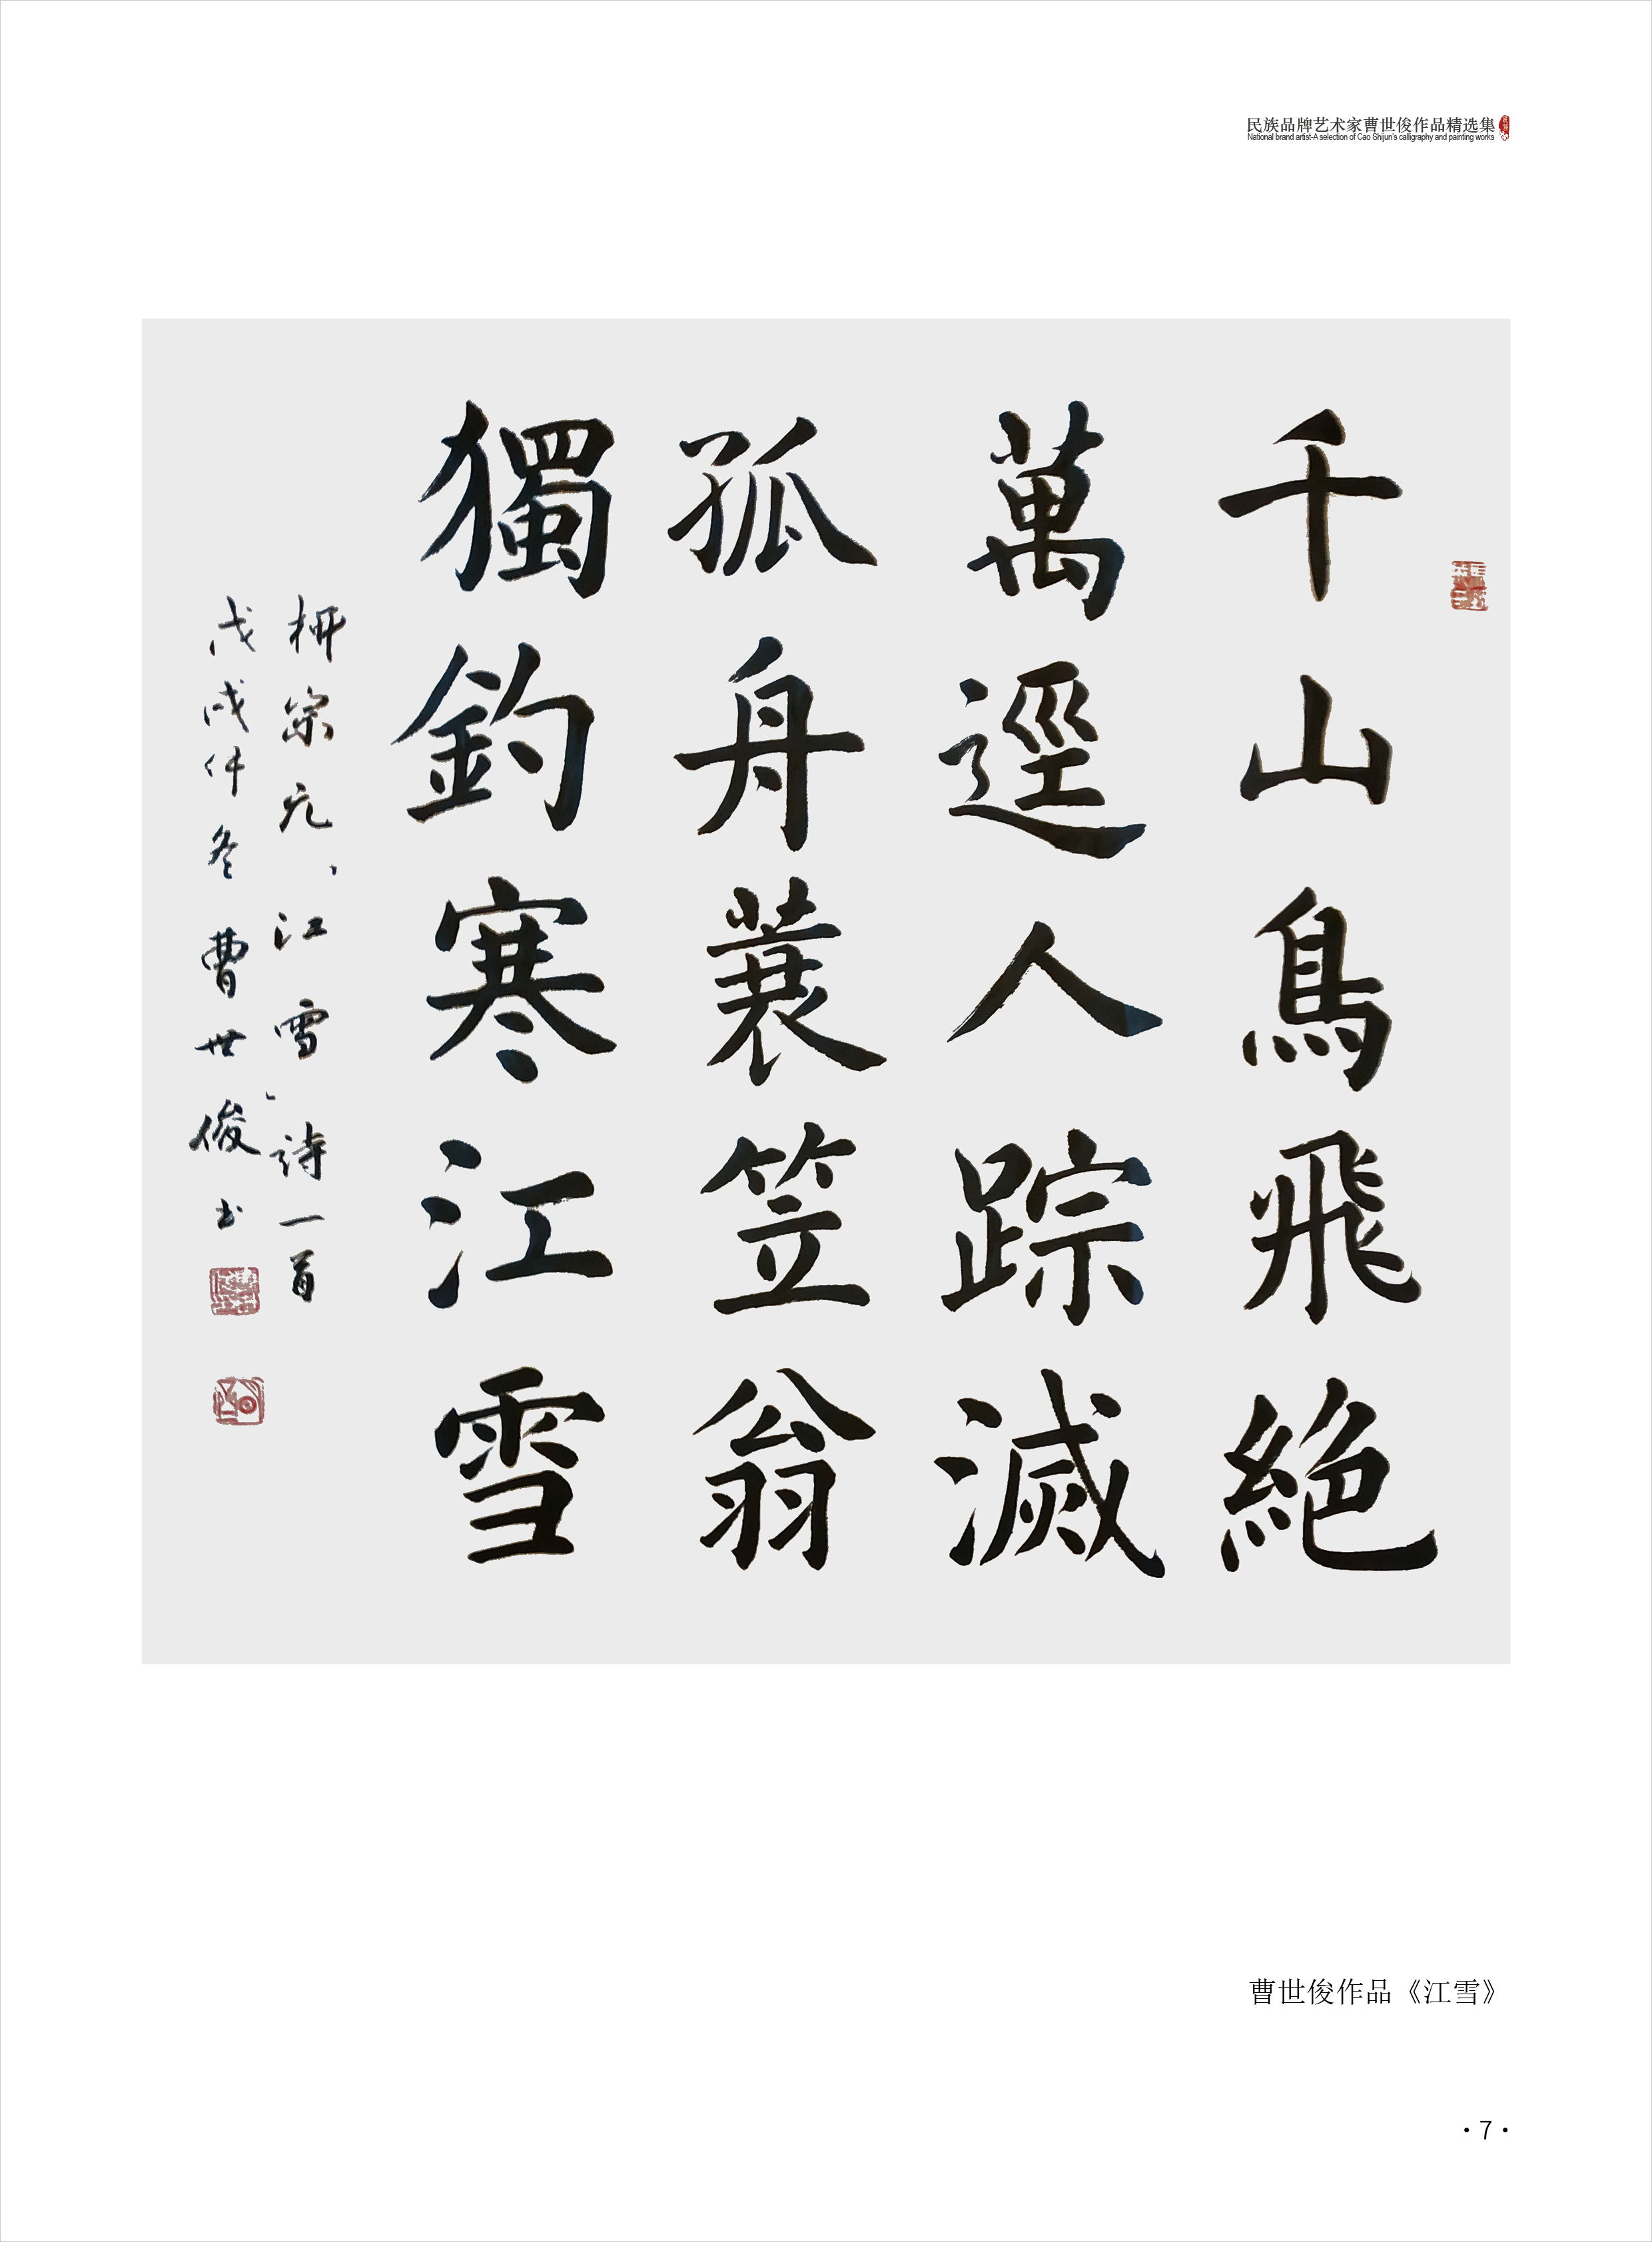 民族品牌艺术家曹世俊作品精选集
National brand artist-A selection of Cao Shijun's calligraphy and painting works
千山鳥飛絶
萬逕人踪滅
孤舟蓑笠翁
獨釣寒江雪
柳宗元、江雪、詩一首
戊戌仲冬曹世俊书
曹世俊作品《江雪》
·7·